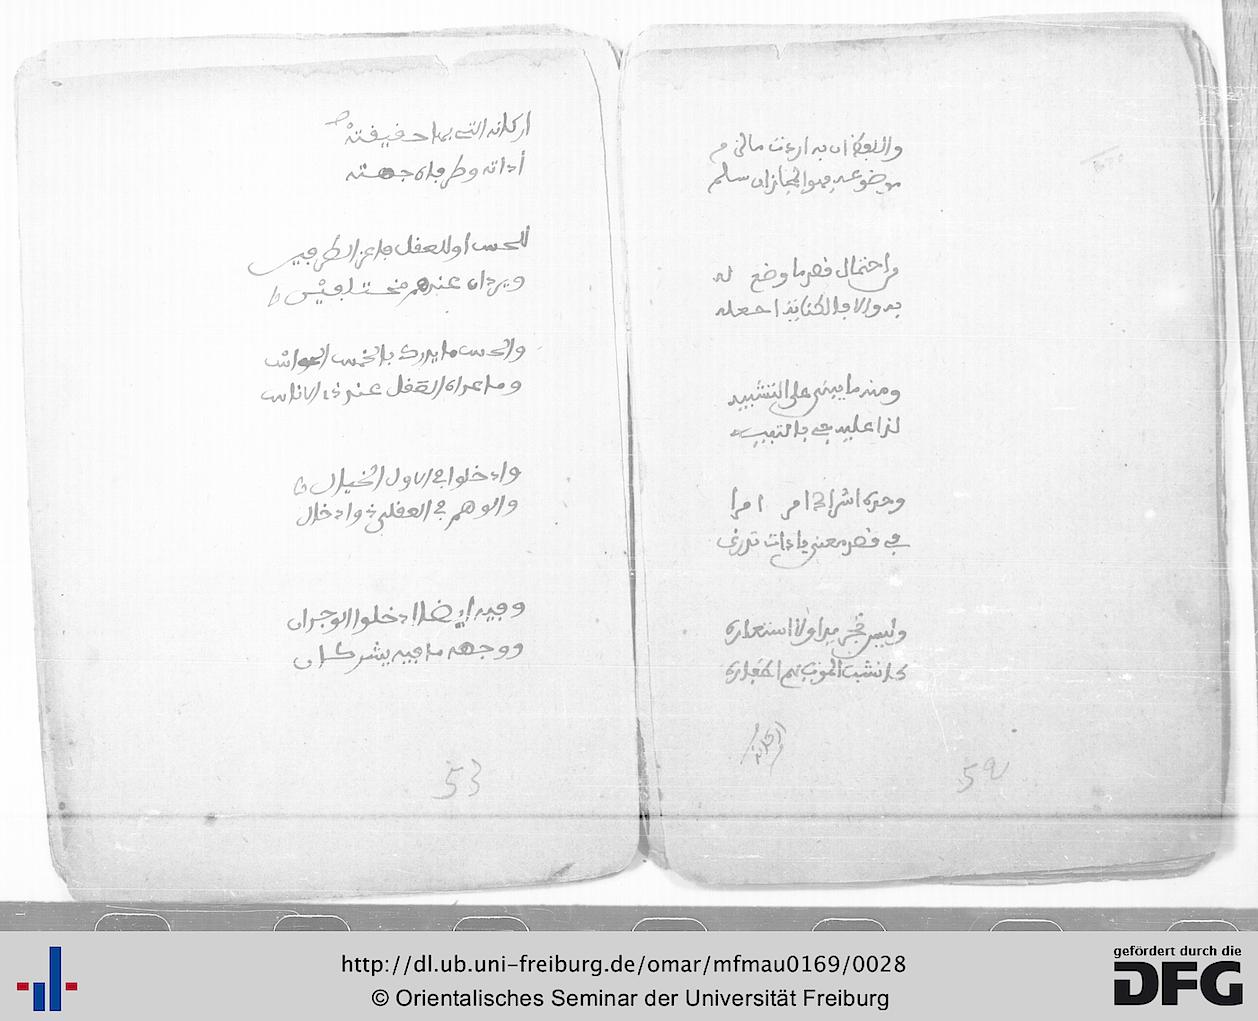 واللفظ ان به اردت مالى م
موضوعه فهو المجازان سلم
من احتمال قصد ما وضع له
به والا فالكناية اجعله
ومنه ما يبنى على التشبيه
لذا عليه فى
وحده اشراك امر امرا
فى قصد معنى باداة تدرى
وليس تجريدا ولا استعاره
اركانه
52
اركانه التى بها حقيقته
أداته وطرفاه جهته
للحس او للعقل فاعز الطرفين
ويردان عندهم مختلفين
والحس ما يدرك بالخمس الحواس
وما عداه العقل عند ذى الاناس
وادخلوا فى الاول الخيال
والوهم فى العقلى ذو ادخال
وفيه ايضا ادخلوا الوجدان
ووجهه ما فيه يشركان
53
http://dl.ub.uni-freiburg.de/omar/mfmau0169/0028
© Orientalisches Seminar der Universität Freiburg
gefördert durch die
DFG